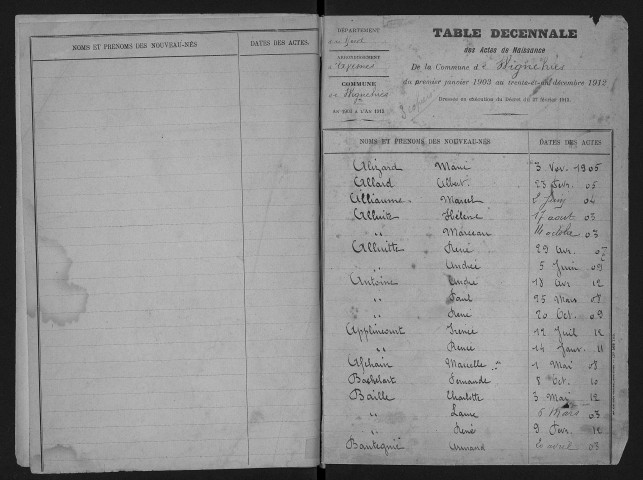 NOMS ET PRÉNOMS DES NOUVEAU-NÉS DATES DES ACTES.
DÉPARTEMENT
du Nord
ARRONDISSEMENT
d'Avesnes
COMMUNE
de Wignehies
TABLE DECENNALE
des Actes de Naissance
De la Commune de Wignehies
du premier janvier 1903 au trente-et-un décembre 1912
Dressée en exécution du Décret du
NOMS ET PRÉNOMS DES NOUVEAU-NÉS DATES DES ACTES
Marie 3 1905
Allard Albert 23 Fevr. 05
Alliaume Marcel 04
Hélène 17 aout 03
" Marceau 14 octobre 03
Alluitte René 29 Avr.
" André 5 Juin 09
Antoine André 18 Avr 12
" Paul 25 Mars 08
" René 20 Oct. 09
Applincourt Irénée 12 Juil 12
" Renée 14 Janv. 11
Marcelle 1 Mai 08
Bachelart Fernande 8 Oct. 10
Baille Charlotte 3 Mai 12
" Laure 6 Mars 03
" René 9 Fevr. 12
Bantegnié Armand 20 avril 03